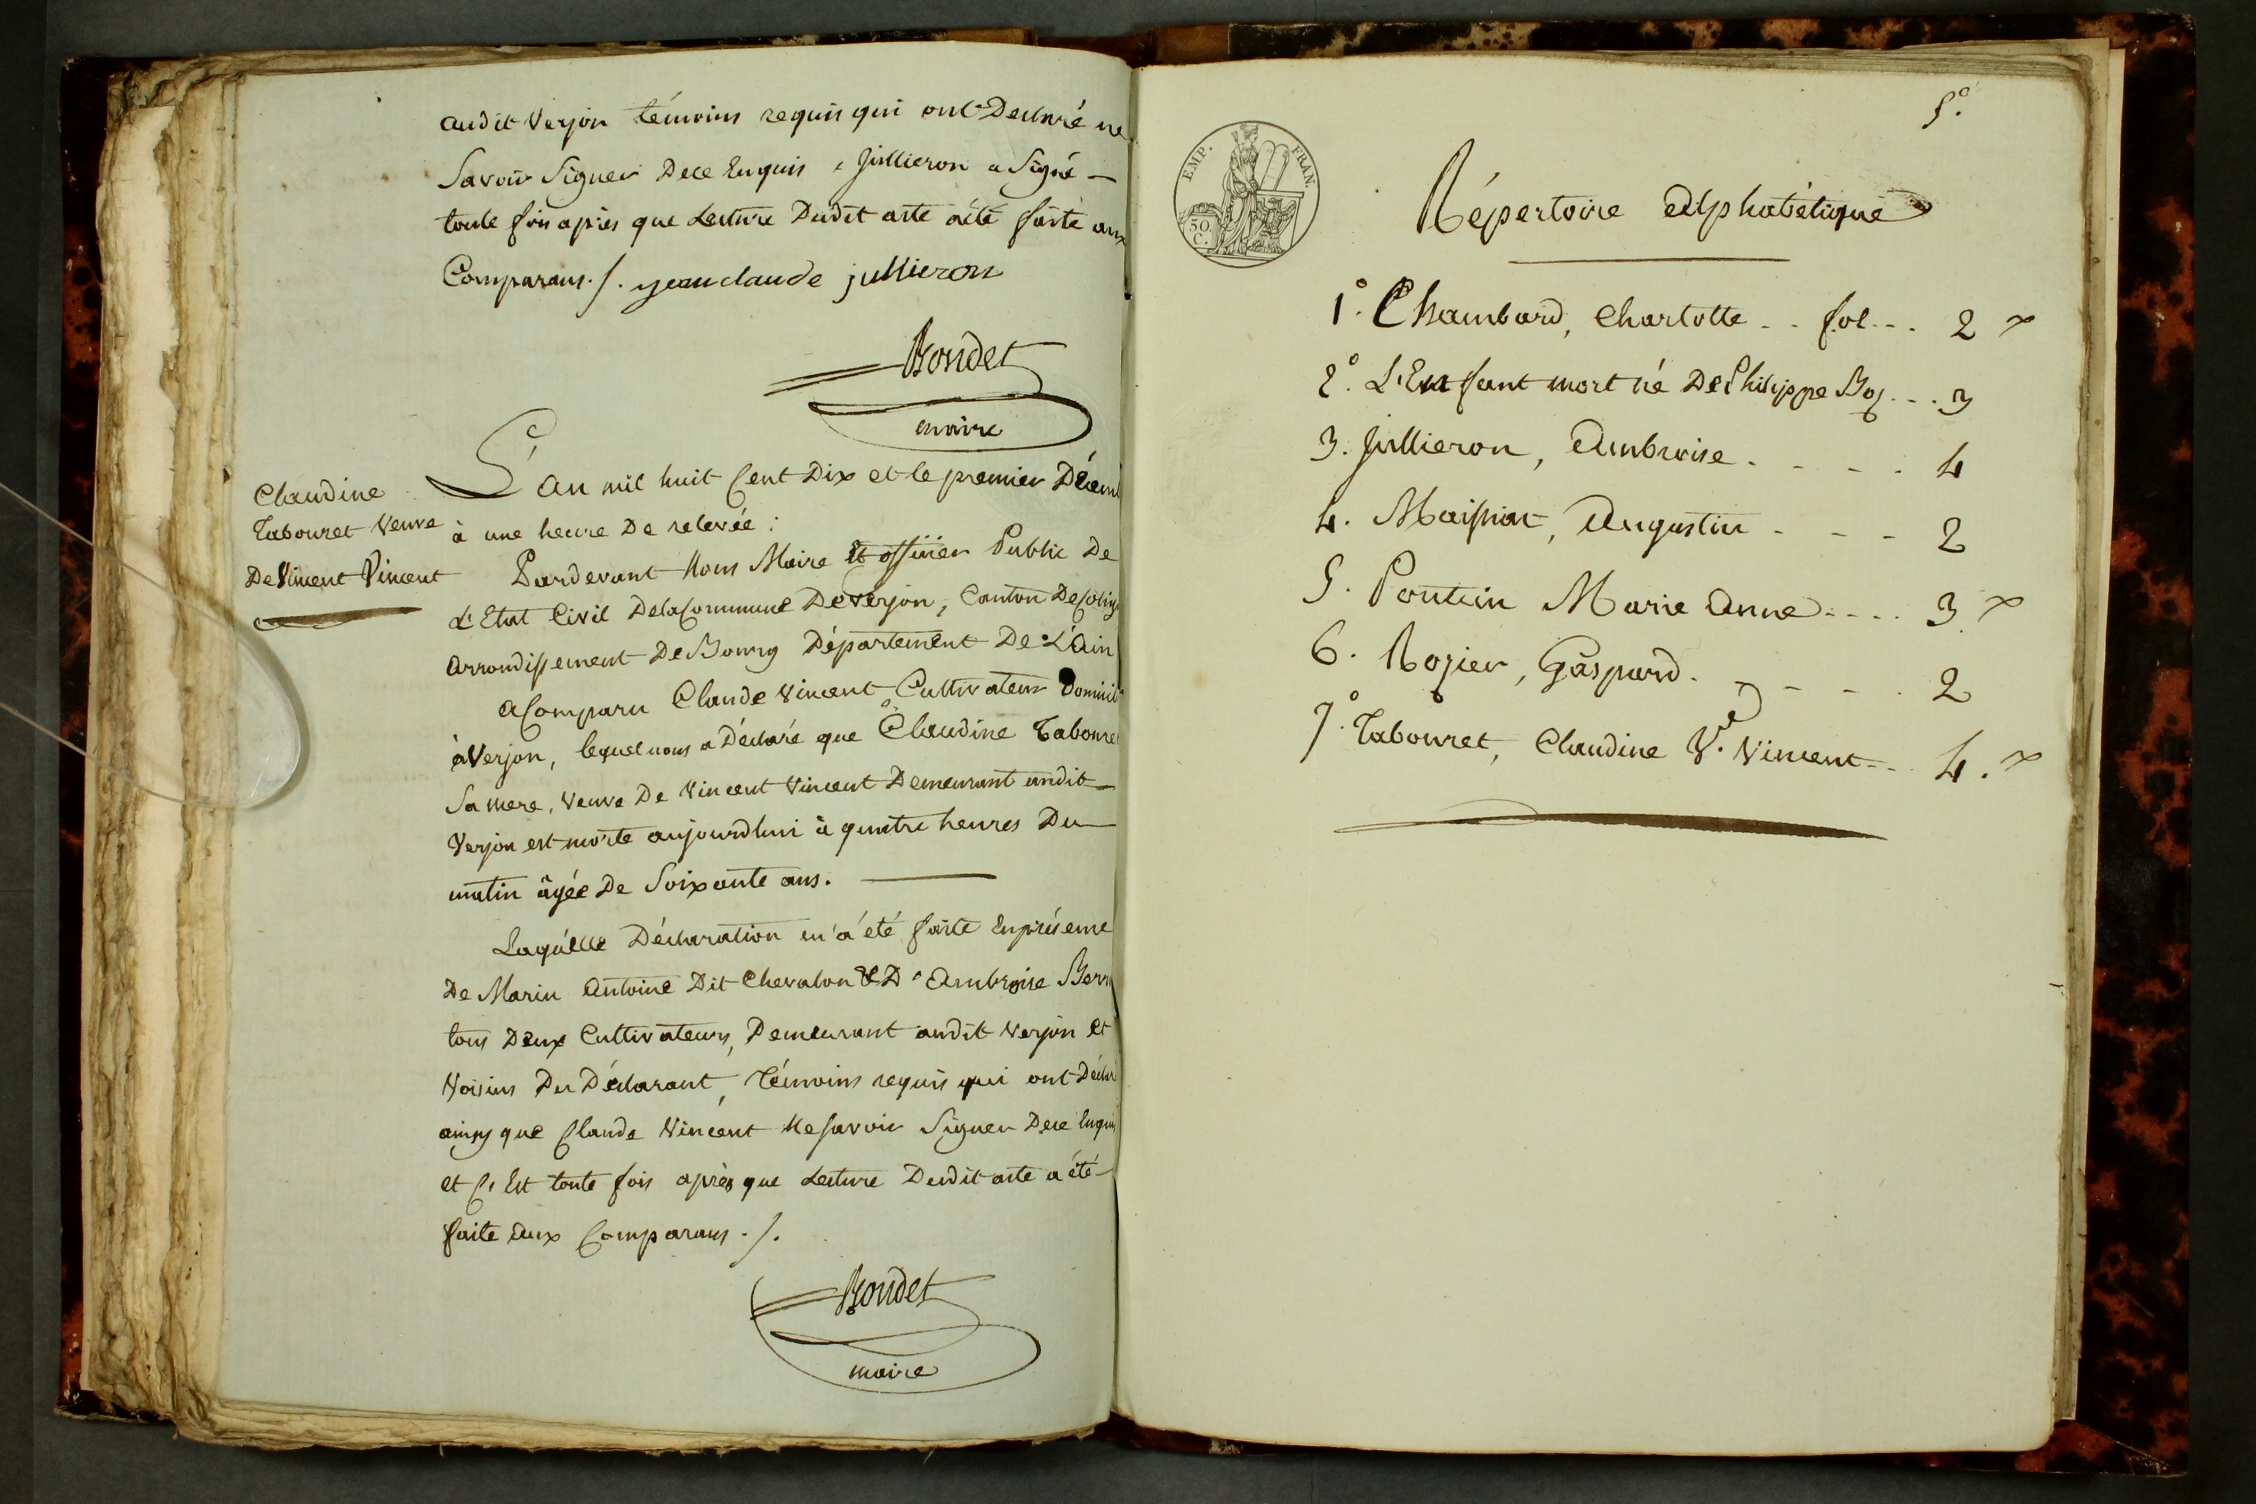 audit Verjon témoins requis qui ont Declaré ne
Savoir Signer Dece Enquis, Jullieron a Signé —
toute fois après que Lecture Dudit acte a été faite aux
Comparans ./. jean claude jullieron
Bondet
maire
Claudine
Tabouret Veuve
De Vincent Vincent
L'an mil huit Cent Dix et le premier Décem
à une heure De relevée :
Pardevant Nous Maire Et officier Public De
L'Etat Civil Dela Commune De Verjon, Canton De Colig
Arrondissement De Bourg Département De L'Ain
a Comparu Claude Vincent Cultivateur Domicil
à Verjon, lequel nous a Déclaré que Claudine Taboure
Sa mere, Veuve De Vincent Vincent Demeurant audit —
Verjon est morte aujourdhui à quatre heures Du —
matin âgée De Soixante ans. —
Laquelle Déclaration m'a été faite En présence
De Marin Antoine Dit Chevalon & D'Ambroise
tous Deux Cultivateurs, Demeurant audit Verjon et
Voisins Du Déclarant, Témoins requis qui ont Déclar
ainsy que Claude Vincent Ne Savoir Signer Dece Enquis
et C'Est toute fois après que Lecture Dudit acte a été —
faite aux Comparans ./.
Bondet
maire
5°.
EMP. FRAN.
50. C.
Répertoire Alphabétique
1°. Chambard, Charlotte .. fol... 2 x
2°. L'Enfant mort né De Philippe ... 3
3. Jullieron, Ambroise . . . . 4
4. Augustin - - - 2
5. Pontein Marie Anne .... 3. x
6. Rozier, Gaspard. - - - . 2
7°. Tabouret, Claudine Ve. Vincent ... 4. x